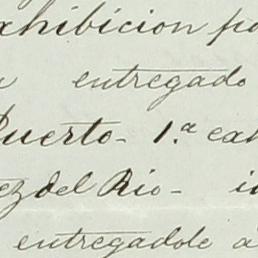 xhibicion po
entregado
Puerto- 1.ª ext
ez del Rio- i
entregadole a